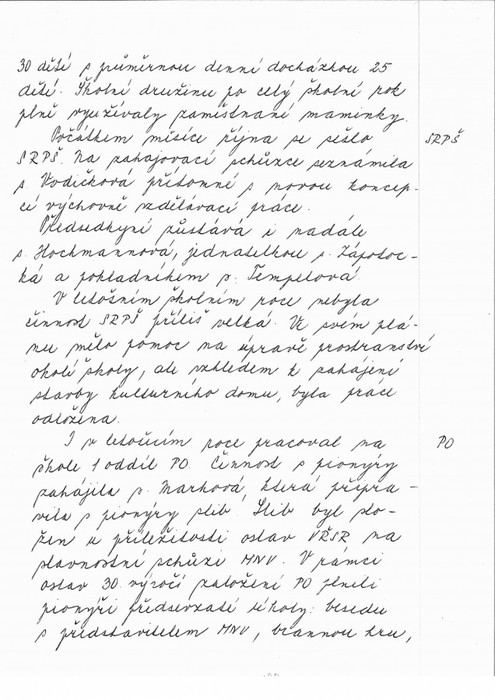 30 dětí s průměrnou denní docházkou 25
dětí. Školní družinu po celý školní rok
plně využívaly zaměstnané maminky.
Počátkem měsíce října se sešlo
SRPŠ
SRPŠ. Na zahajovací schůzce seznámila
s. Vodičková přítomné s novou koncep-
cí výchovně vzdělávací práce.
Předsedkyní zůstává i nadále
s. Hochmannová, jednatelkou s. Zápotoc-
ká a pokladníkem s. Tempelová.
V letošním školním roce nebyla
činnost SRPŠ příliš velká. Ve svém plá-
nu mělo pomoc na úpravě prostranství
okolí školy, ale vzhledem k zahájení
stavby kulturního domu, byla práce
odložena.
I v letošním roce pracoval na
PO
škole 1 oddíl PO. Činnost s pionýry
zahájila s. Marková, která připra-
vila s pionýry slib. Slib byl slo-
žen u příležitosti oslav VŘSR na
slavnostní schůzi MNV. V rámci
oslav 30. výročí založení PO plnili
pionýři předsevzaté úkoly: besedu
s představitelem MNV, brannou hru,